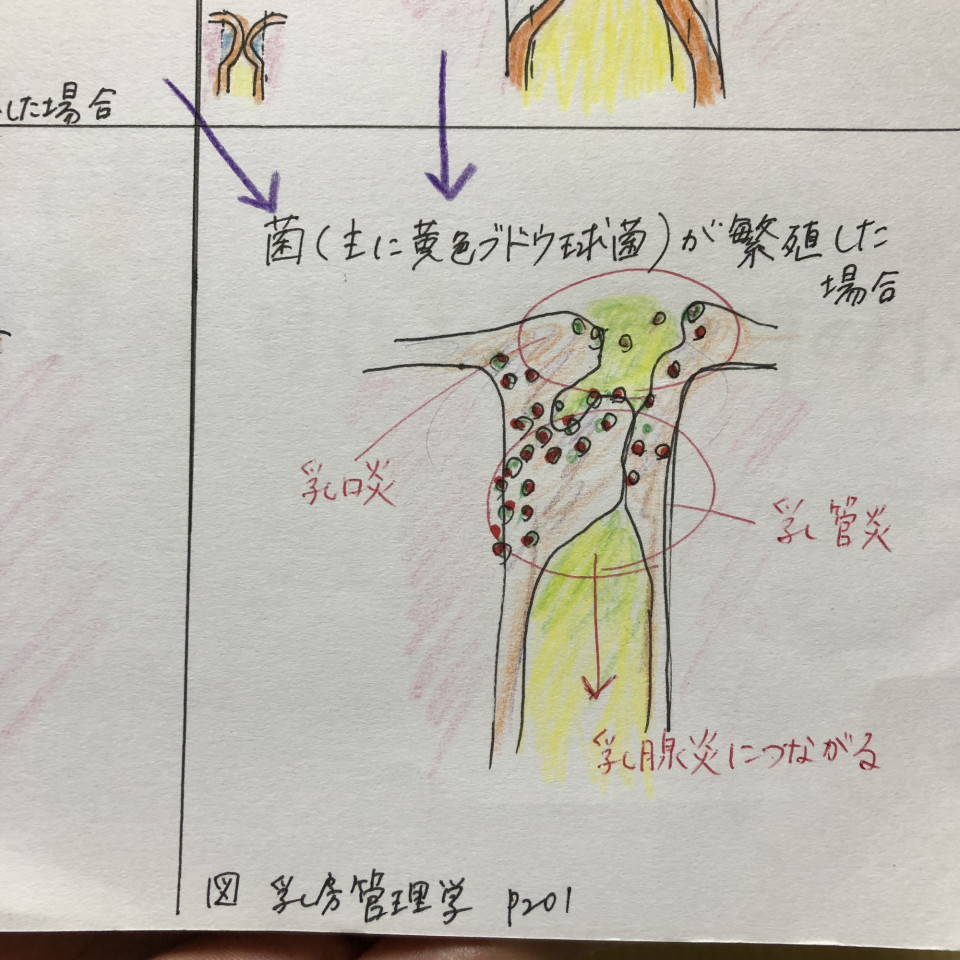 した場合
菌(主に黄色ブドウ球菌)が繁殖した
場合
乳口炎
乳管炎
乳腺炎につながる
図 乳房管理学 P201